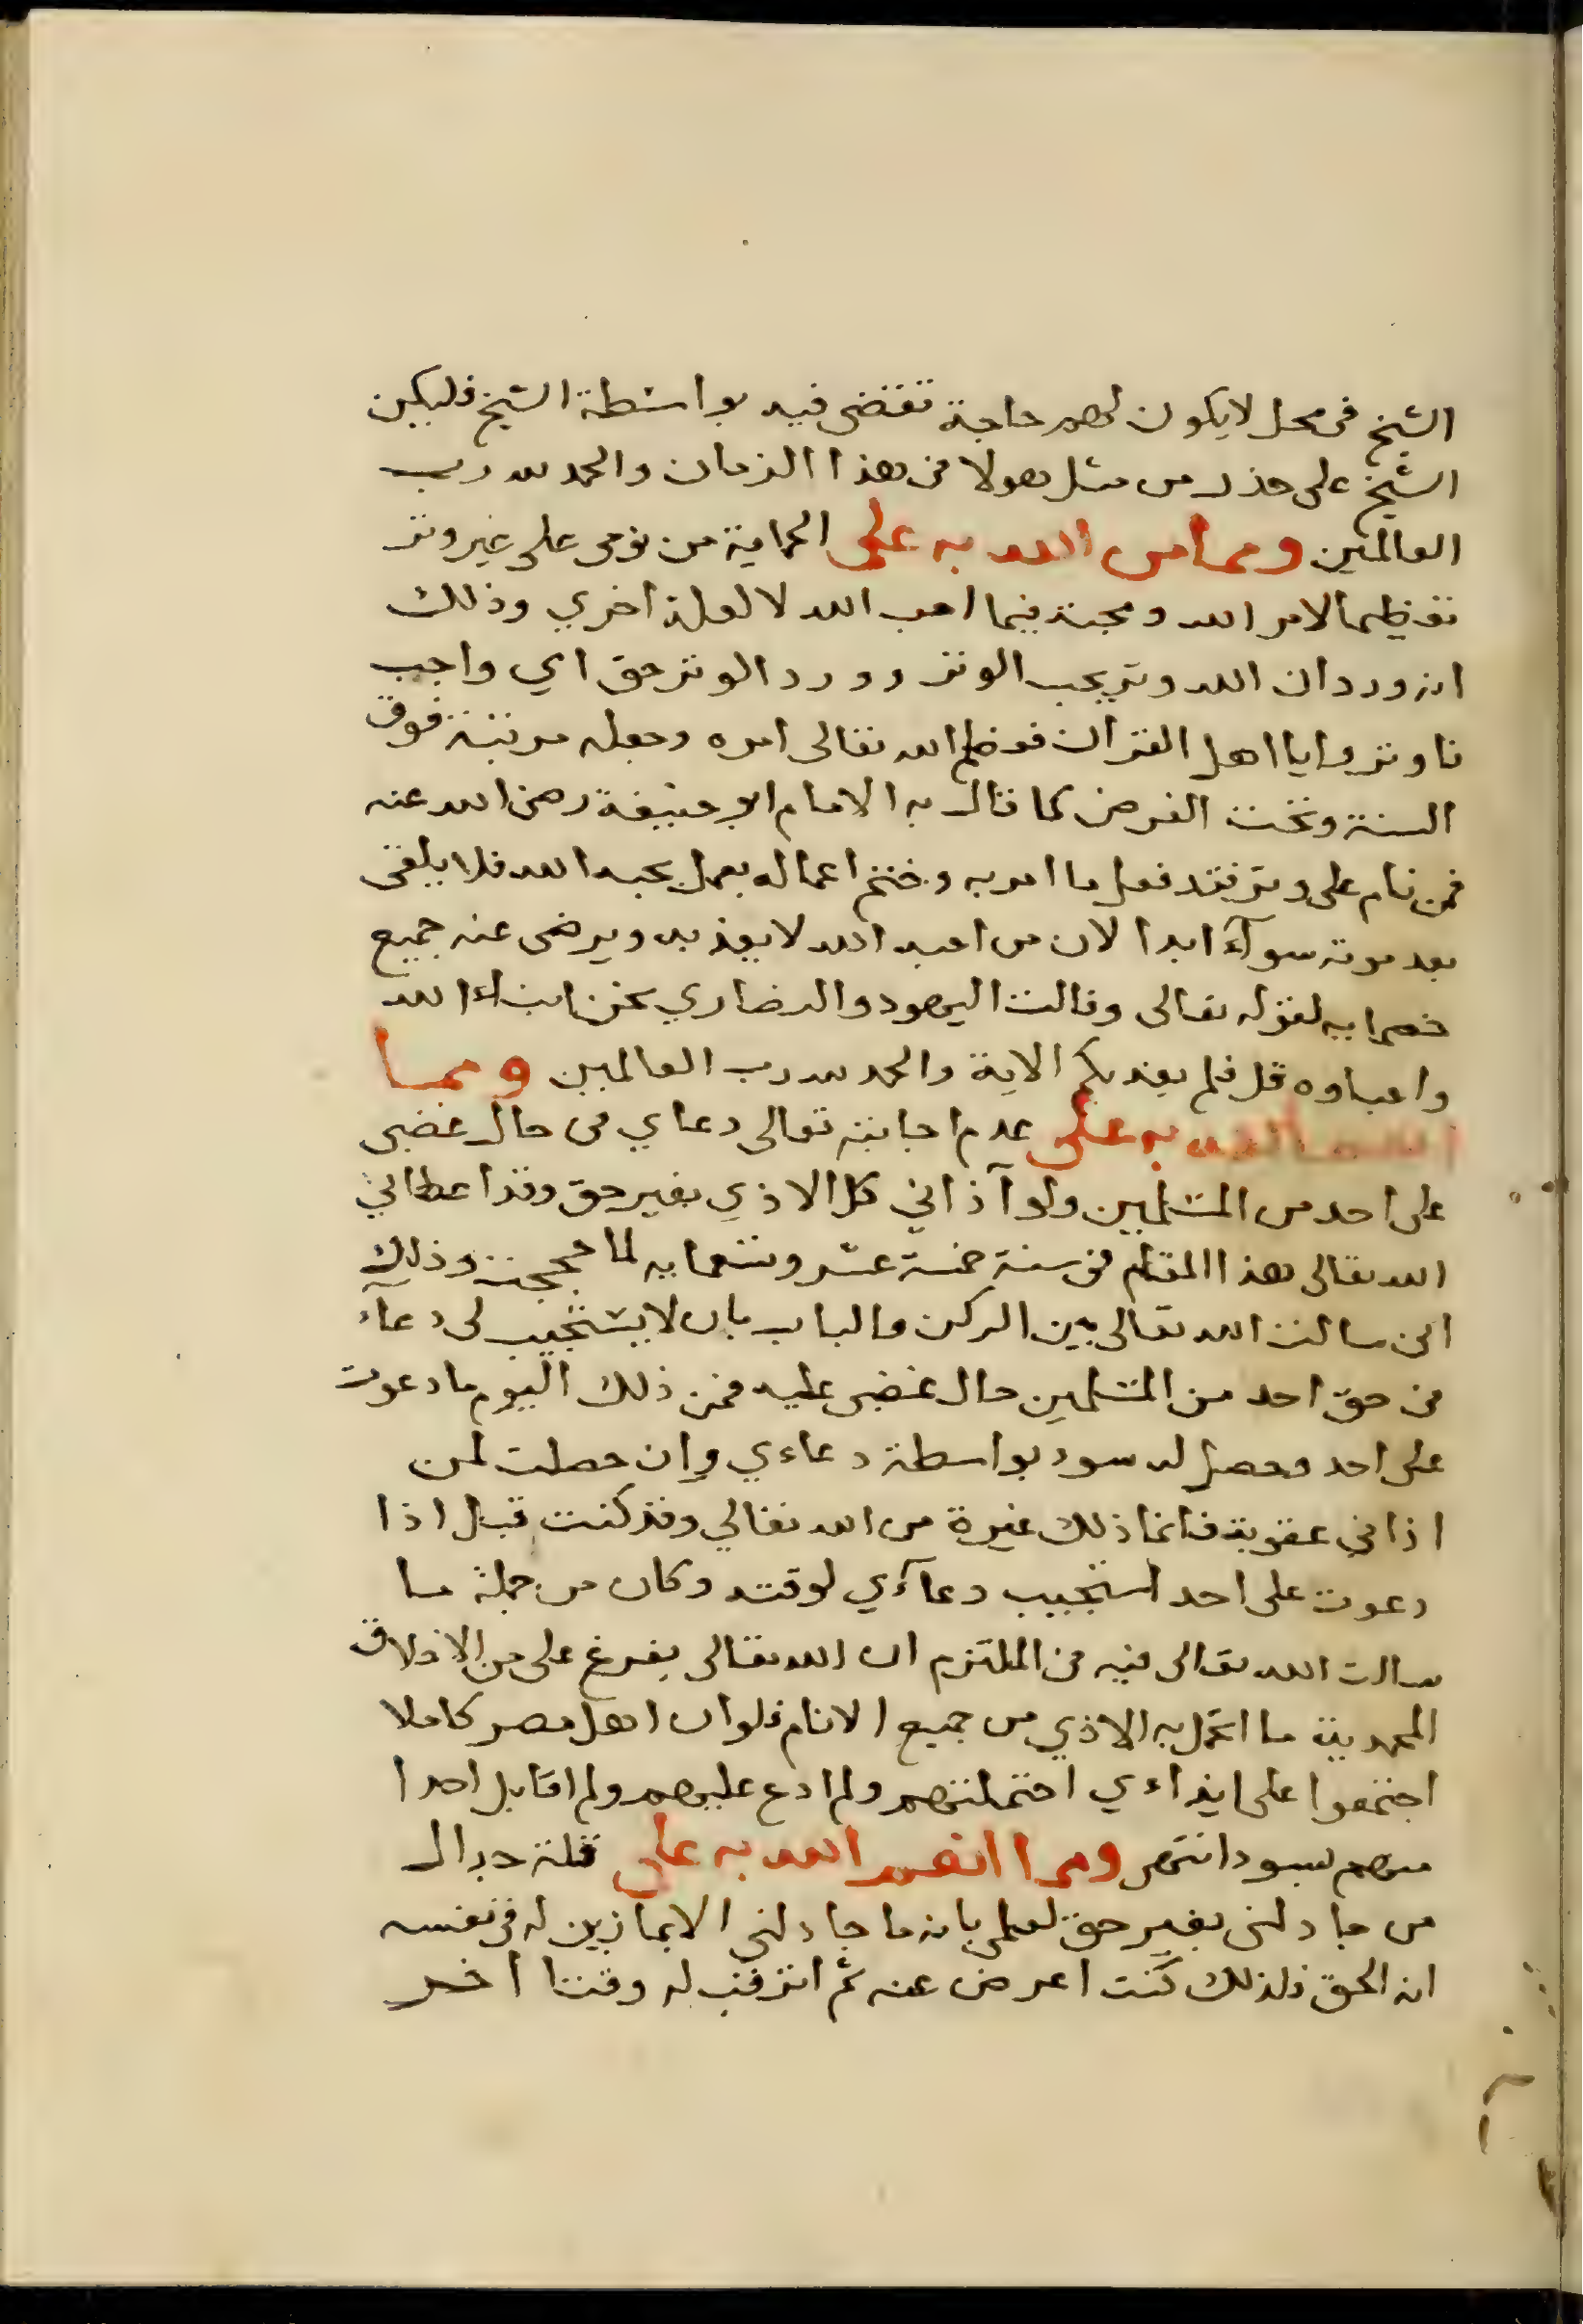 الشيخ في محل لا يكون لهم حاجة تقضى فيه بواسطة الشيخ فليكن
الشيخ على حذر من مثل هولا في هذا الزمان والحمد لله رب
العالمين ومما من الله به على الحماية من نومى على غير وتر
تعظيما لامر الله ومحبة فيما احب الله لا لعلة اخري وذلك
انه ورد ان الله وتر يحب الوتر وورد الوتر حق اي واجب
فاوتروا يا اهل القران فعظم الله تعالى امره وجعله مرتبة فوق
السنة وتحت الفرض كما قال به الامام ابو حنيفة رضى الله عنه
فمن نام على وتر فقد فعل ما امر به وختم اعماله بعمل يحبه الله فلا يلقى
بعد موته سوآء ابدا لان من احبه الله لا يعذبه ويرضى عنه جميع
خصمايه لقوله تعالى وقالت اليهود والنصاري نحن ابناء الله
واحباوه قل فلم يعذبكم الاية والحمد لله رب العالمين ومما
الله به على عدم اجابته تعالى دعاي في حال غضبى
على احد من المسلمين ولو آذاني كل الاذي بغير حق وقد اعطاني
الله تعالى هذا المقام في سنة خمسة عشر وتسعمايه لما حججت وذلك
انى سالت الله تعالى بين الركن والباب بان لا يستجيب لى دعآء
في حق احد من المسلمين حال غضبى عليه فمن ذلك اليوم ما دعوت
على احد وحصل له سوء بواسطة دعاءي وان حصلت لمن
اذاني عقوبة فانما ذلك غيرة من الله تعالي وقد كنت قبل اذا
دعوت على احد استجيب دعآءي لوقته وكان من جملة ما
سالت الله تعالى فيه في الملتزم ان الله تعالى يفرغ على من الاخلاق
المحمدية ما اتحمل به الاذي من جميع الانام فلو ان اهل مصر كاملا
اجتمعوا على ايذاءي احتملتهم ولم ادع عليهم ولم اقابل احدا
منهم بسوء انتهى ومما انعم الله به على قلة جدال
من جادلنى بغير حق لعلمى بانه ما جادلنى الا بما زين له في نفسه
انه الحق فلذلك كنت اعرض عنه ثم اترقب له وقتا اخر